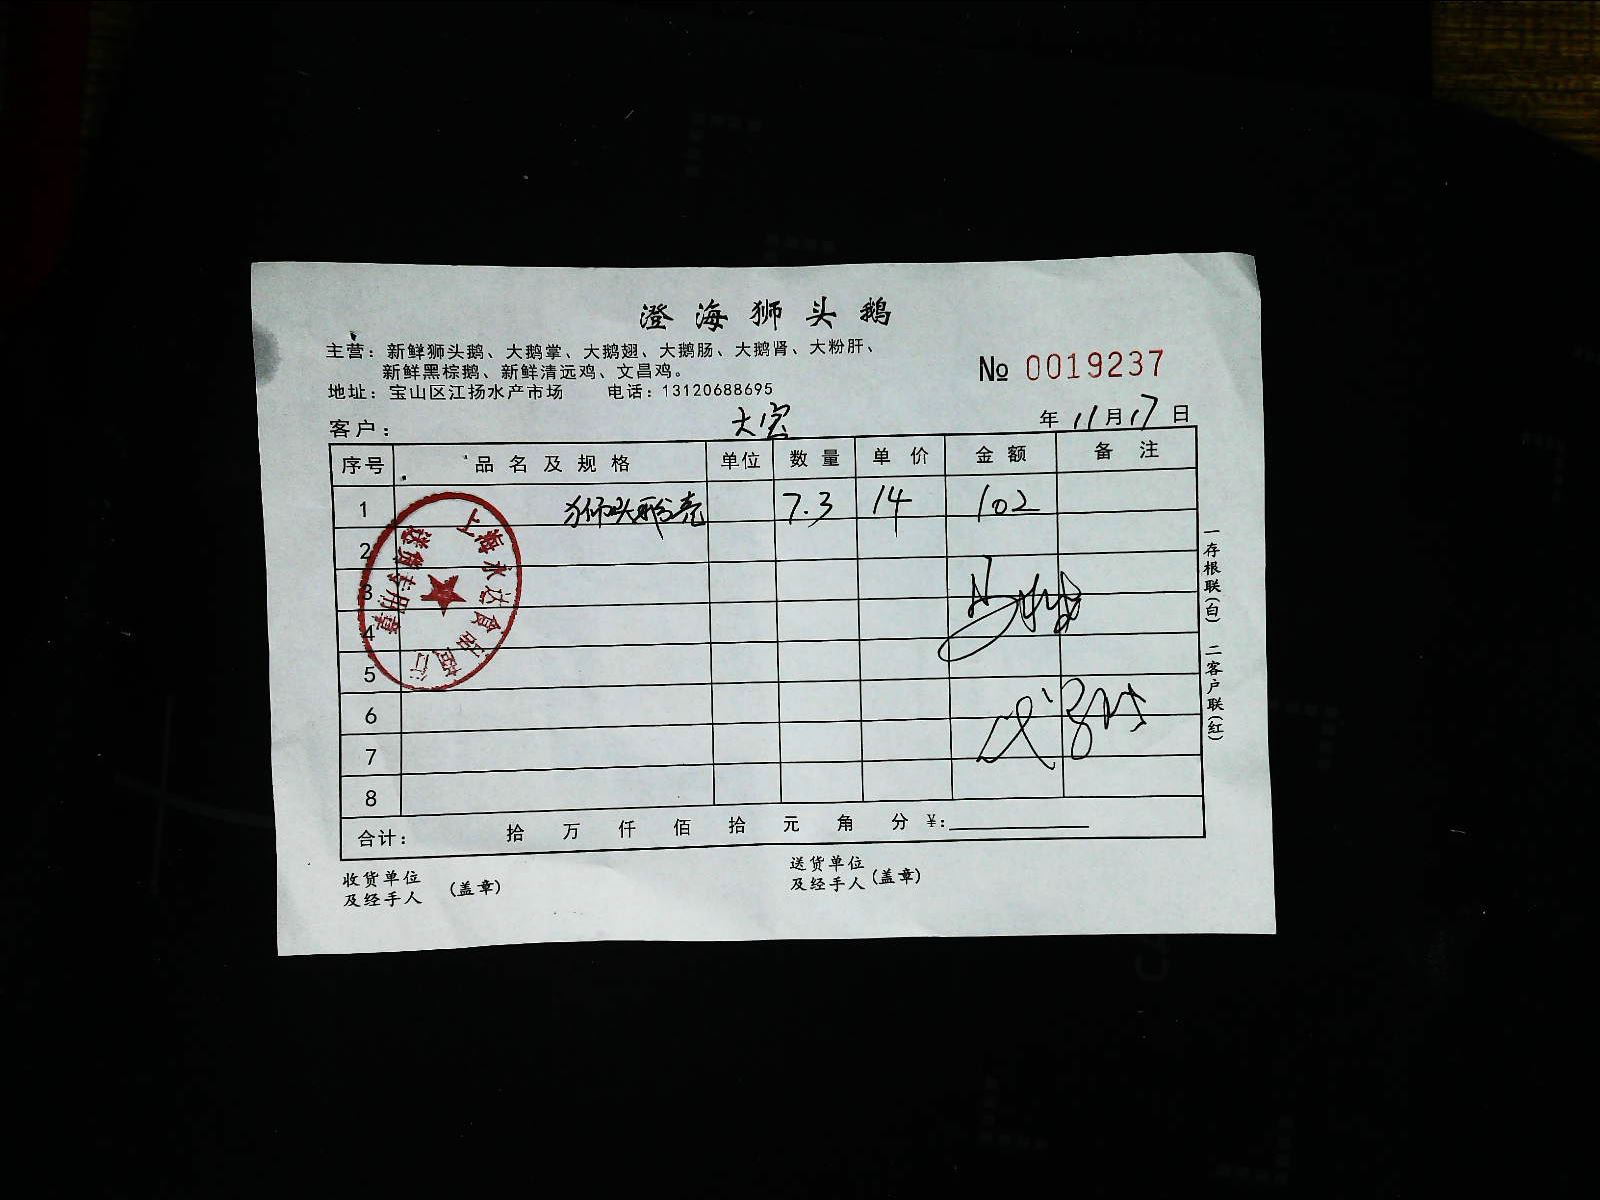 澄海狮头鹅
主营：新鲜狮头鹅、大鹅掌、大鹅翅、大鹅肠、大鹅肾、大粉肝、
新鲜黑棕鹅、新鲜清远鸡、文昌鸡。
№ 0019237
地址：宝山区江扬水产市场 电话：13120688695
客户： 大宝 年 11月17日
序号 品名及规格 单位 数量 单价 金额 备注
1 狮头鹅壳 7.3 14 102
2
3
4
5
6
7
8
上海永达食品商行
送货专用章
合计： 拾 万 仟 佰 拾 元 角 分 ¥:
收货单位
及经手人 (盖章)
送货单位
及经手人 (盖章)
一存根联(白) 二客户联(红)